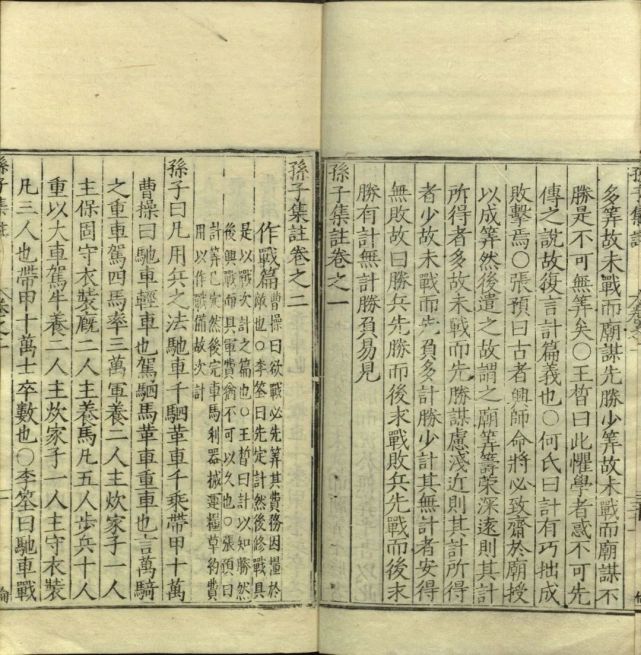 多筭故未戰而廟謀先勝少筭故未戰而廟謀不
勝是不可無筭矣〇王晳曰此懼學者惑不可先
傳之說故復言計篇義也〇何氏曰計有巧拙成
敗擊焉〇張預曰古者興師命將必致齋於廟授
以成筭然後遣之故謂之廟筭籌深遠則其計
所得者多故未戰而先勝謀慮淺近則其計所得
者少故未戰而先負多計勝少計其無計者安得
無敗故曰勝兵先勝而後求戰敗兵先戰而後求
勝有計無計勝負易見
孫子集註卷之一
孫子集註卷之二
作戰篇
曹操曰欲戰必先筭其費務因糧於
敵也〇李筌曰先定計然後修戰具
是以戰次計之篇也〇王晳曰計以知勝然
後興戰而具軍費猶不可以久也〇張預曰
計筭已定然後完車馬利器械運糧草約費
用以作戰備故次計
孫子曰凡用兵之法馳車千駟革車千乘帶甲十萬
曹操曰馳車輕車也駕駟馬革車重車也言萬騎
之重車駕四馬率三萬軍養二人主炊家子一人
主保固守衣裝廐二人主養馬凡五人步兵十人
重以大車駕牛養二人主炊家子一人主守衣裝
凡三人也帶甲十萬士卒數也〇李筌曰馳車戰
孫子集註